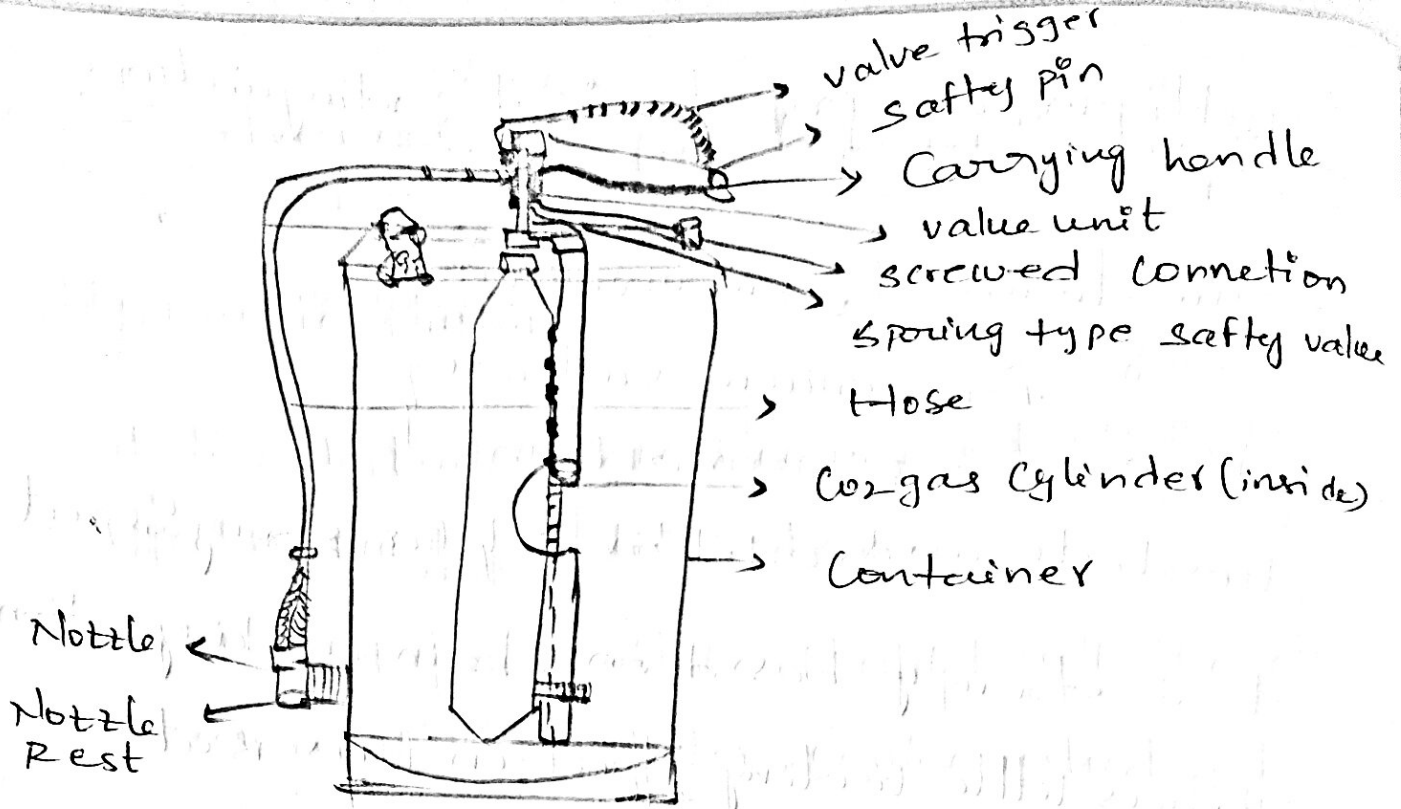 value trigger
safty pin
Carrying handle
value unit
screwed connetion
spring type safty value
Hose
Co2 gas Cylinder (inside)
Container
Nozzle
Nozzle
Rest